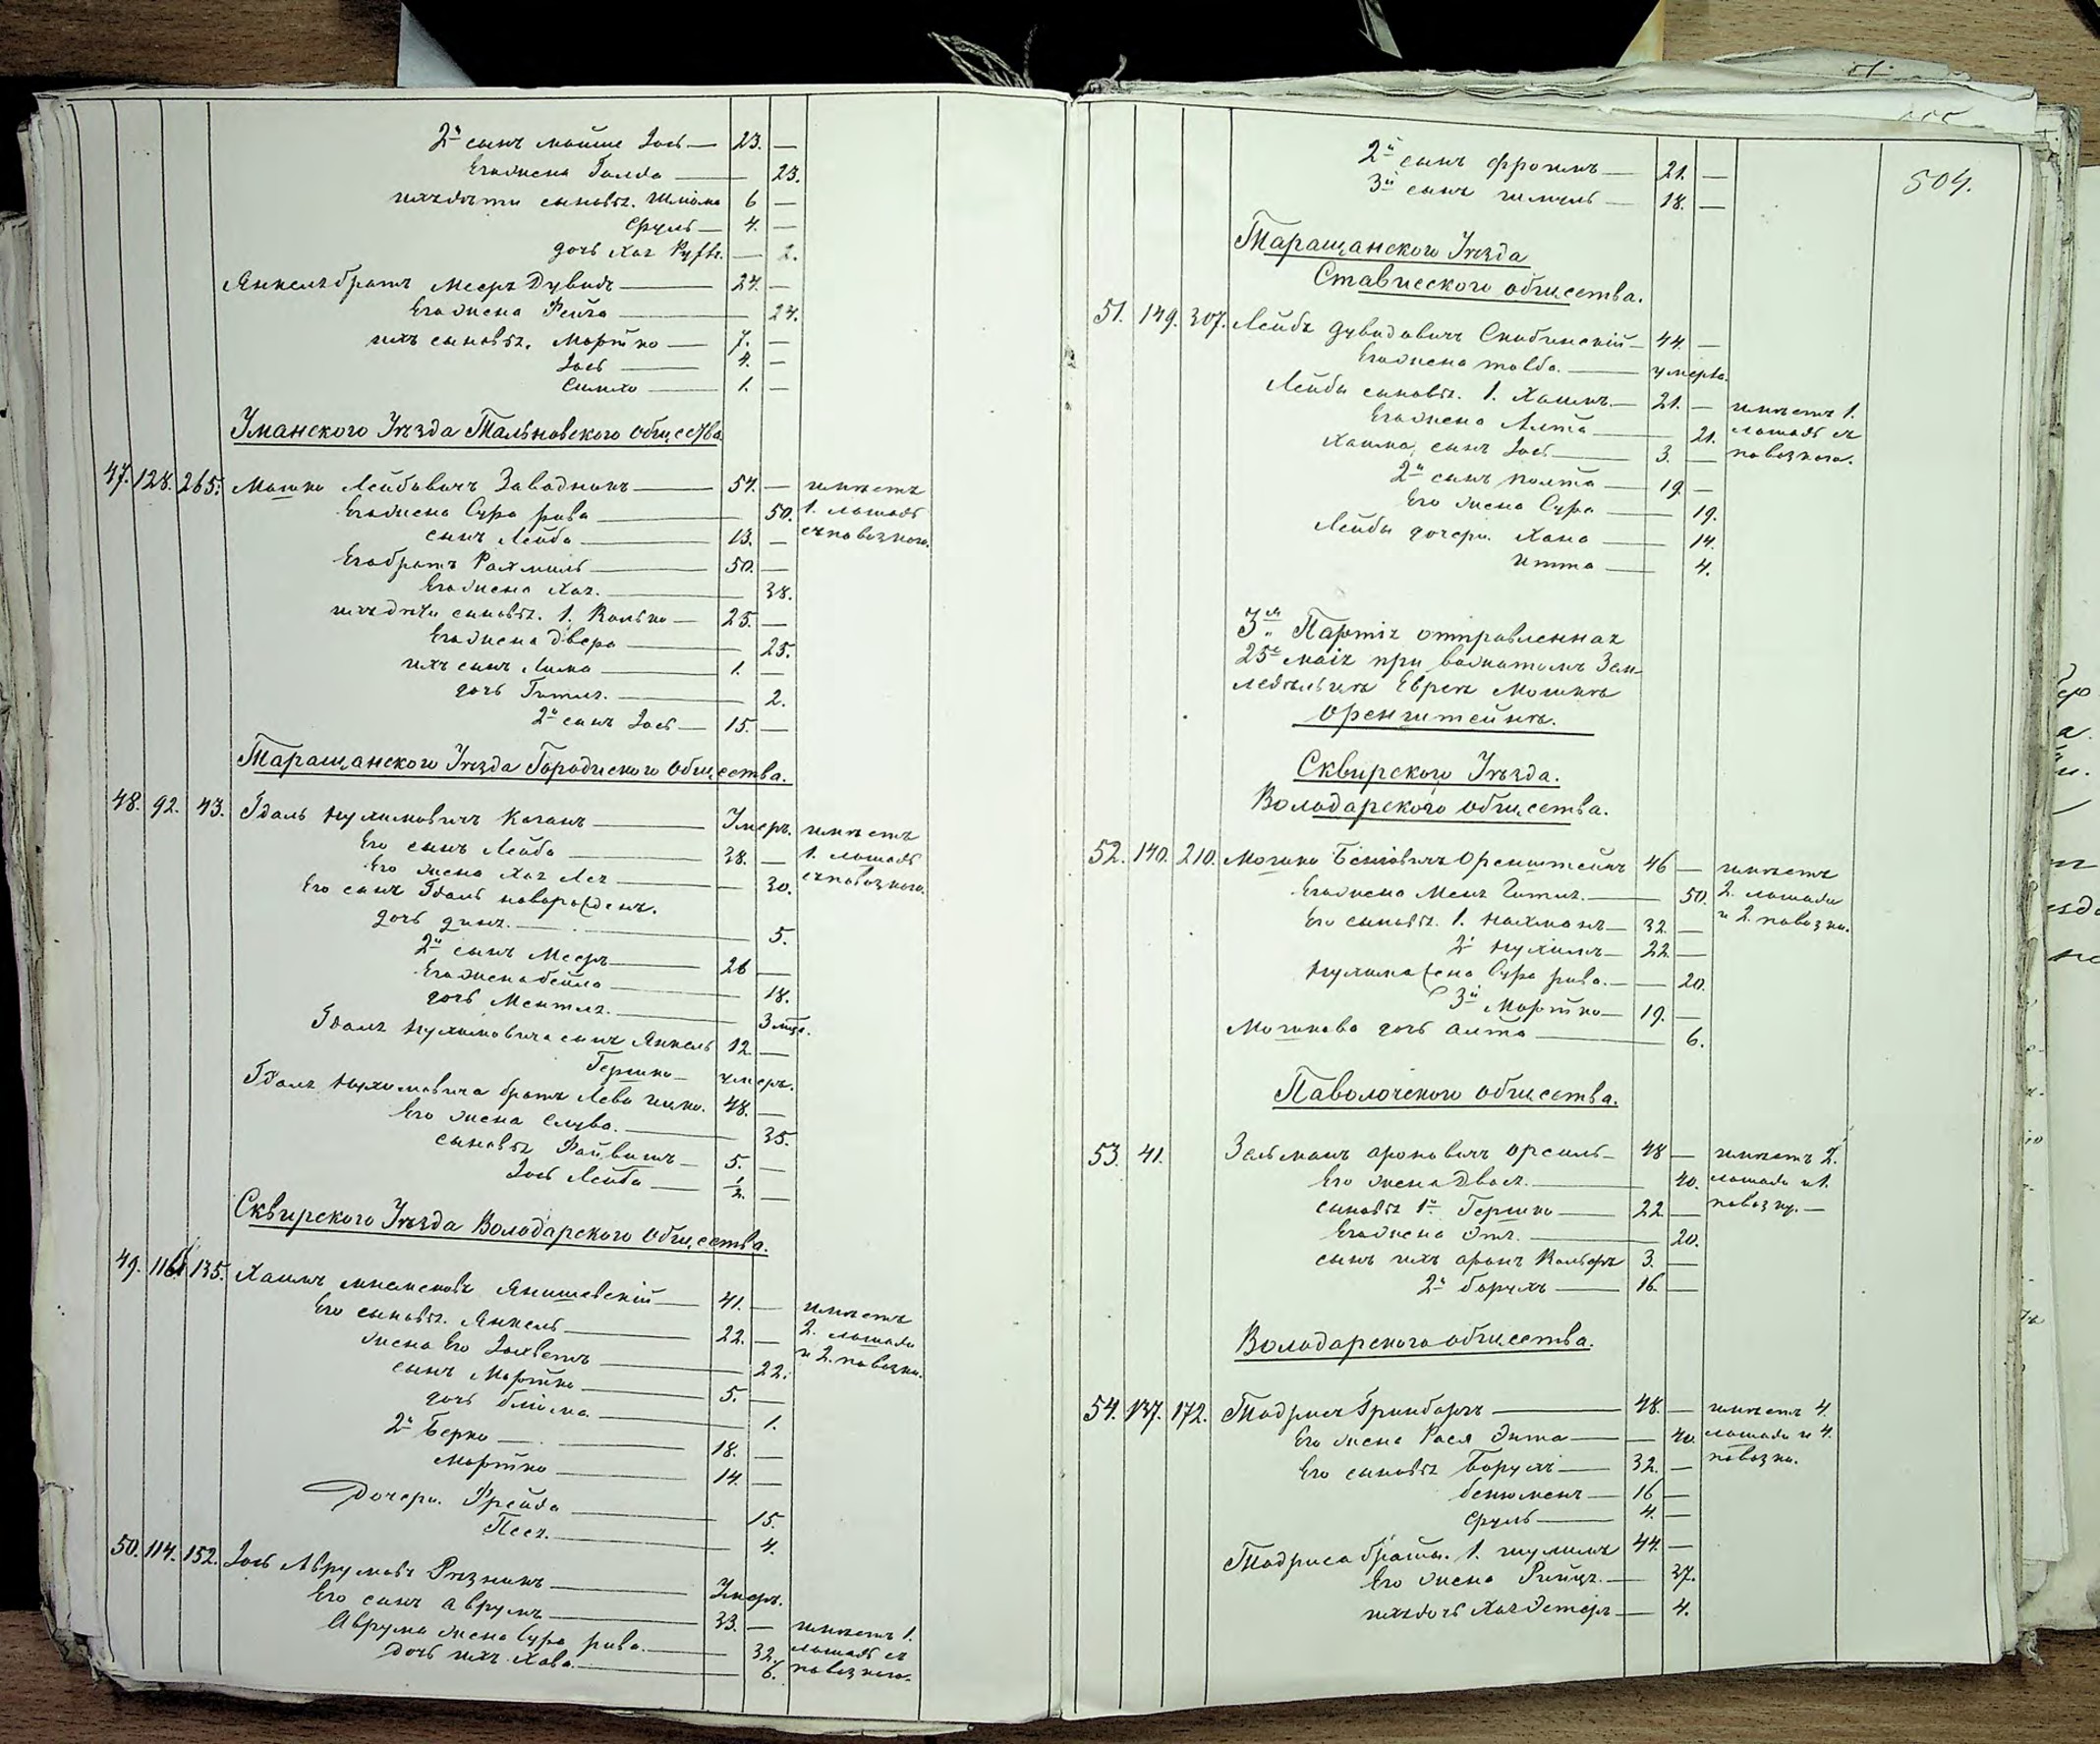 2й сынъ мойше Іось — 23. —
Его жена Голда — 23.
ихъ дѣти сыновья. Шлiома 6 —
Сруль — 4. —
дочь Хая Руфля. — 2.
Янкеля братъ Мееръ Дувидъ — 24. —
Его жена Фейга — 24.
ихъ сыновья. Мортко — 7. —
Іось — 4. —
Симха — 1. —
Уманского Уѣзда Тальновского общества
47. 128. 265. Мошко Лейбовичъ Заводникъ — 54. — имѣетъ
Его жена Сура рива — 50. 1. лошадь
сынъ Лейба — 13. — съ повозкою.
Его братъ Рахмиль — 50. —
Его жена Хая. — 38.
ихъ дѣти сыновья. 1. Колько — 25. —
Его жена Двера — 25.
ихъ сынъ Лима — 1. —
дочь Гитля. — 2.
2й сынъ Іось — 15. —
Таращанского Уѣзда Городиского Общества.
48. 92. 43. Гдаль Нухимовичъ Коганъ — Умеръ. имѣетъ
Его сынъ Лейба — 38. — 1. лошадь
Его жена Хая Лея — 30. съ повозкою.
Его сынъ Гдаль новорожденъ.
дочь дина. — 5.
2й сынъ Мееръ — 26 —
Его жена бейла — 18.
дочь Ментля. — 3 мѣс.
Гдаля Нухимовича сынъ Янкель 12. —
Гершко — умеръ.
Гдаля Нухимовича братъ Лева ицко. 48. —
Его жена Слува. — 35.
сыновья Файвишъ — 5. —
Іось Лейба — 1/2. —
Сквирского Уѣзда Володарского Общества.
49. 116 135. Хаимъ Янишевскій — 41. — имѣетъ
Его сыновья. Янкель — 22. — 2. лошади
жена Его Іохветъ — 22. и 2. повозки.
сынъ Мортко — 5. —
дочь блюма — 1.
2й Берко — 18. —
мортко — 14. —
Дочери. Фрейда — 15.
Песя. — 4.
50. 114. 152. Іось Аврумовъ Рѣзникъ — Умеръ.
Его сынъ аврумъ — 33. — имѣетъ 1.
Аврума жена Сура рива. — 32. лошадь съ
дочь ихъ Хава. — 6. повозкою.
2й сынъ фроимъ — 21. —
3й сынъ шмуль — 18. —
504.
Таращанского Уѣзда
Ставиского общества.
51. 149. 307. Лейба дувидовичъ Скибинскій — 44. —
Его жена товба. — умерла.
Лейбы сыновья. 1. Хаимъ — 21. — имѣетъ 1.
Его жена Алта — 21. лошадь съ
Хаима сынъ Іось — 3. — повозкою.
2й сынъ полта — 19. —
Его жена Сура — 19.
Лейбы дочери. Хана — 14.
итта — 4.
3я Партія отправленная
25го маія при вожатомъ Зем-
ледѣльцѣ Евреѣ Мошкѣ
Оренштейнѣ.
Сквирского Уѣзда.
Володарского общества.
52. 140. 210. Мошко Беніовичъ Оренштейнъ 46 — имѣетъ
Его жена Меня Гитля. — 50. 2. лошади
Его сыновья. 1. Нахманъ — 32. — и 2. повозки.
2й Нухимъ — 22. —
Нухима жена Сура рива. — 20.
3й Мортко — 19. —
Мошкова дочь алта — 6.
Паволочского общества.
53. 41. Зальманъ ароновичъ орсиль — 48 — имѣетъ 2.
Его жена Двося. — 40. лошади и 1.
сыновья 1й Гершко — 22. — повозку. —
Его жена Этя. — 20.
сынъ ихъ аронъ Кальфръ 3. —
2й борухъ — 16. —
Володарского общества.
54. 137. 172. Тодрисъ Гринбаргъ — 48. — имѣетъ 4.
Его жена Рася Энта — 40. лошади и 4.
Его сыновья Борухъ — 32. — повозки.
бенюменъ — 16 —
сруль — 4. —
Тодриса братья. 1. шулимъ 44. —
Его жена Рийця. — 37.
ихъ дочь Хая Эстеръ — 4.